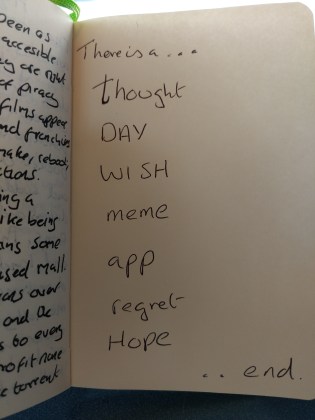 been as
accesible
ey are right
of piracy
films appear
nd franchise
make, reboot,
ctions.
ing a
ike being
ans some
used mall.
eas over
and Dc
s to every
rofit more
e torrent
There is a...
thought
DAY
WISH
meme
app
regret
HOPE
.. end.